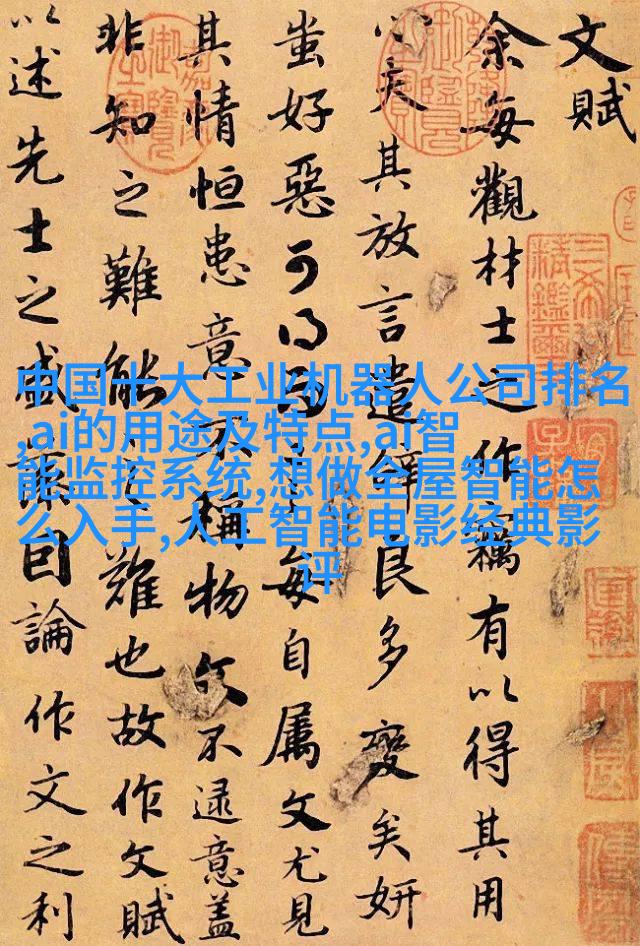 文賦
余每觀材士之作竊有以得其用
心夫其放言遣辭良多變矣妍
蚩好惡可得而言每自屬文尤見
其情恒患意不稱物文不逮意蓋
非知之難能之難也故作文賦
以述先士之盛藻因論作文之利
中国十大工业机器人公司排名
,ai的用途及特点,ai智
能监控系统,想做全屋智能怎
么入手,人工智能电影经典影
评